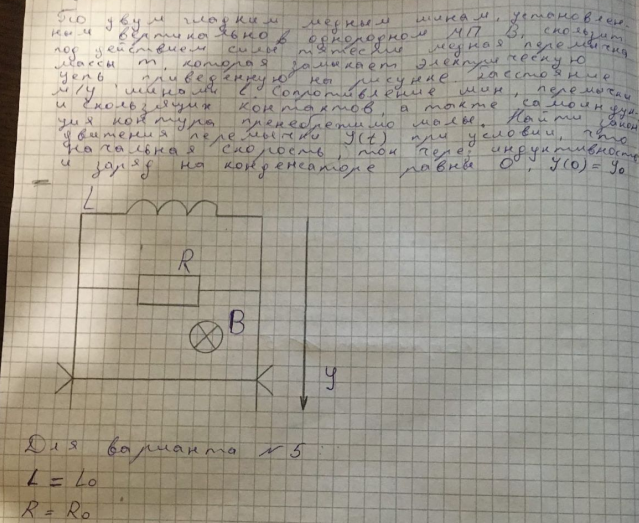 По двум гладким медным шинам, установлен-
ным вертикально в однородном МП В, скользит
под действием силы тяжести медная перемычка
массы m, которая замыкает электрическую
цепь, приведенную на рисунке. расстояние
м/у шинами l. Сопротивление шин, перемычки
и скользящих контактов, а также самоиндук-
ция контура пренебрежимо малы. Найти закон
движения перемычки y(t) при условии, что
начальная скорость, ток через индуктивность
и заряд на конденсаторе равны 0, y(0) = y₀
L
R
B
y
Для варианта № 5
L = L₀
R = R₀